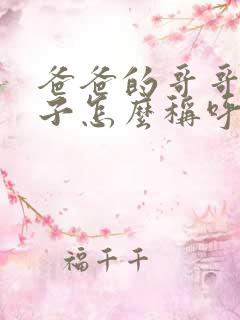 爸爸的哥哥
子怎麼稱呼
福千千